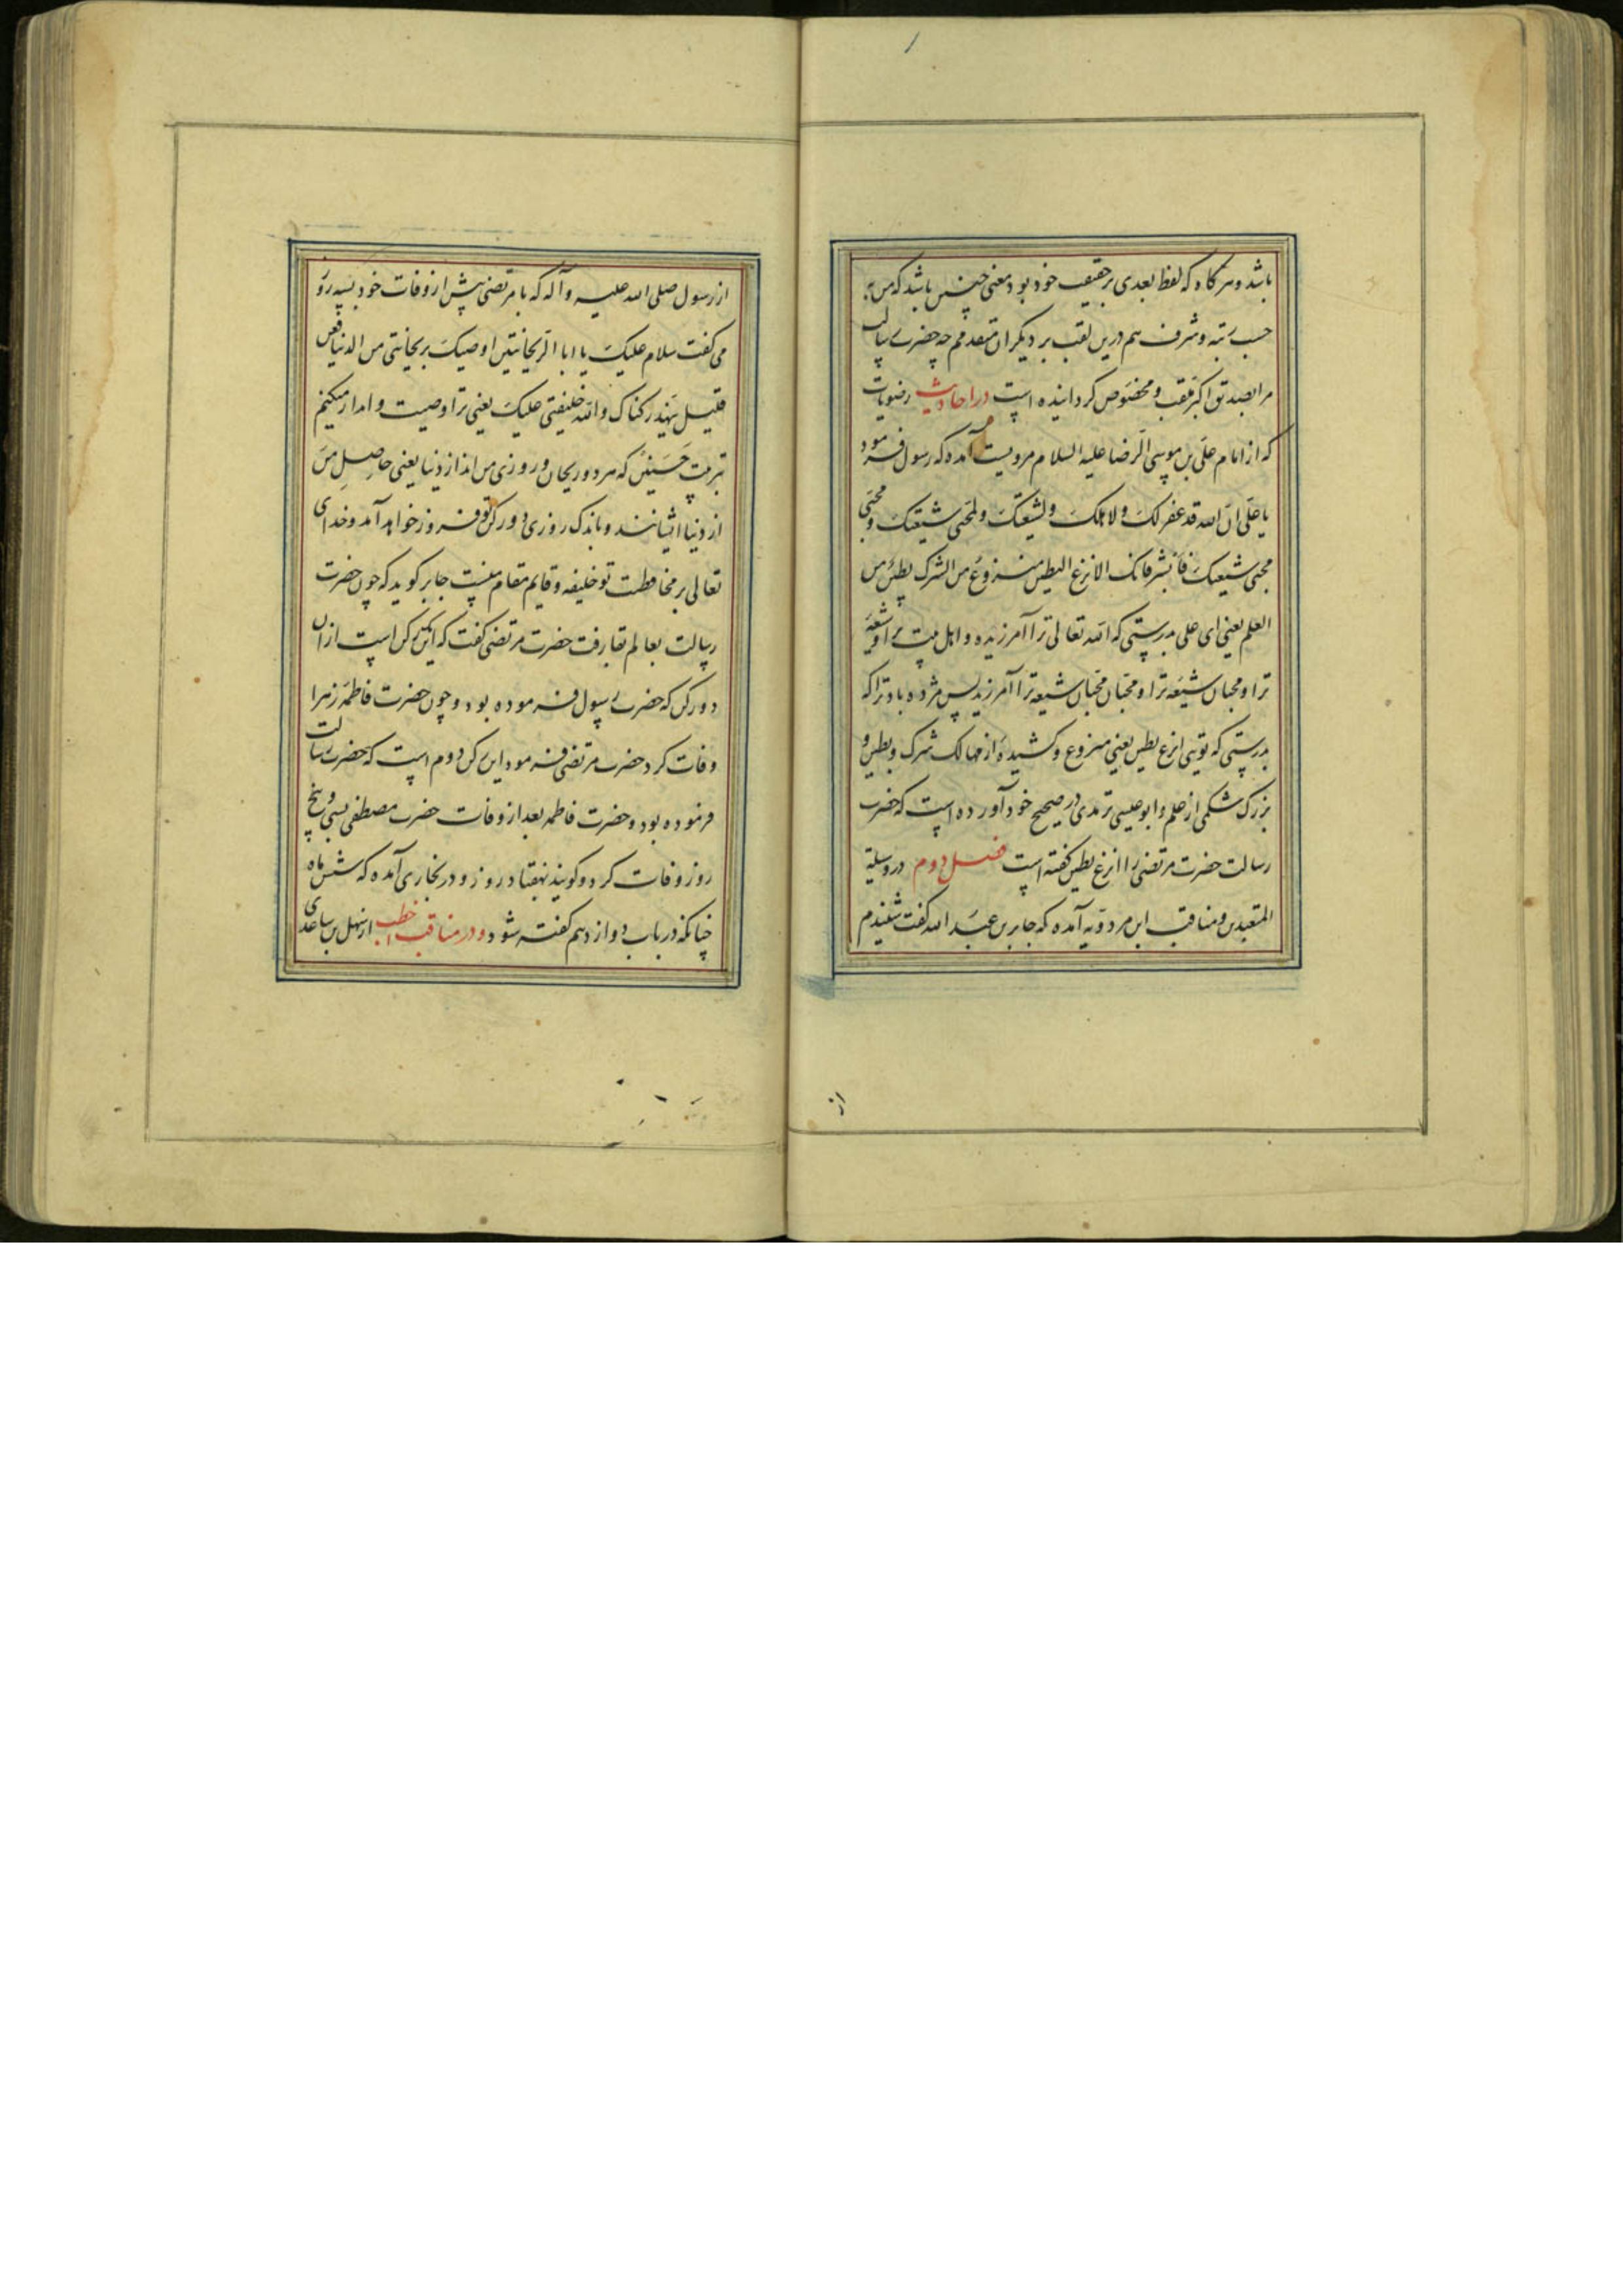 باشد و هرگاه که لفظ بعدی بر حقیقت خود بود معنی چنین باشد که من به
حسب رتبه و شرف هم درین لقب بر دیگران متقدمم چه حضرت رسالت
مرا بصدیق اکبر ملقب و مخصوص گردانیده است در احادیث رضویات
که از امام علی بن موسی الرضا علیه السلام مرویست آمده که رسول فرمود
یا علی ان الله قد غفر لک ولاهلک ولشیعتک ولمحبی شیعتک و محبی
محبی شیعتک فابشر فانک الانزع البطین منزوع من الشرک بطین من
العلم یعنی ای علی بدرستی که الله تعالی ترا آمرزیده و اهل بیت ترا و شیعه
ترا و محبان شیعه ترا و محبان محبان شیعه ترا آمرزید پس مژده باد ترا که
بدرستی که تویی انزع بطین یعنی منزوع و کشیده از مهالک شرک و بطین و
بزرک شکمی از علم و ابو عیسی ترمدی در صحیح خود آورده است که حضرت
رسالت حضرت مرتضی را انزع بطین گفته است فصل دوم در وسیلة
المتعبدین و مناقب ابن مردویه آمده که جابر بن عبد الله گفت شنیدم
از
از رسول صلی الله علیه وآله که با مرتضی پیش از وفات خود بسه روز
می گفت سلام علیک یا ابا الریحانیتن اوصیک بریحانتی من الدنیا فعن
قلیل ینهد رکناک والله خلیفتی علیک یعنی ترا وصیت و امدار میکنم
تربیت حسنین که هر دو ریحان و روزی من اند از دنیا یعنی حاصل من
از دنیا ایشانند و باندک روزی دو رکن تو فرو خواهد آمد و خدای
تعالی بر محافظت تو خلیفه و قایم مقام منست جابر گوید که چون حضرت
رسالت بعالم بقا رفت حضرت مرتضی گفت که این یک رکن است از آن
دو رکن که حضرت رسول فرموده بود و چون حضرت فاطمه زهرا
وفات کرد حضرت مرتضی فرمود این رکن دوم است که حضرت رسالت
فرموده بود و حضرت فاطمه بعد از وفات حضرت مصطفی بسی و پنج
روز وفات کرد و گویند بهفتاد روز و در بخاری آمده که شش ماه
چنانکه در باب دوازدهم گفته شود و در مناقب خطب از سهل بن ساعدی